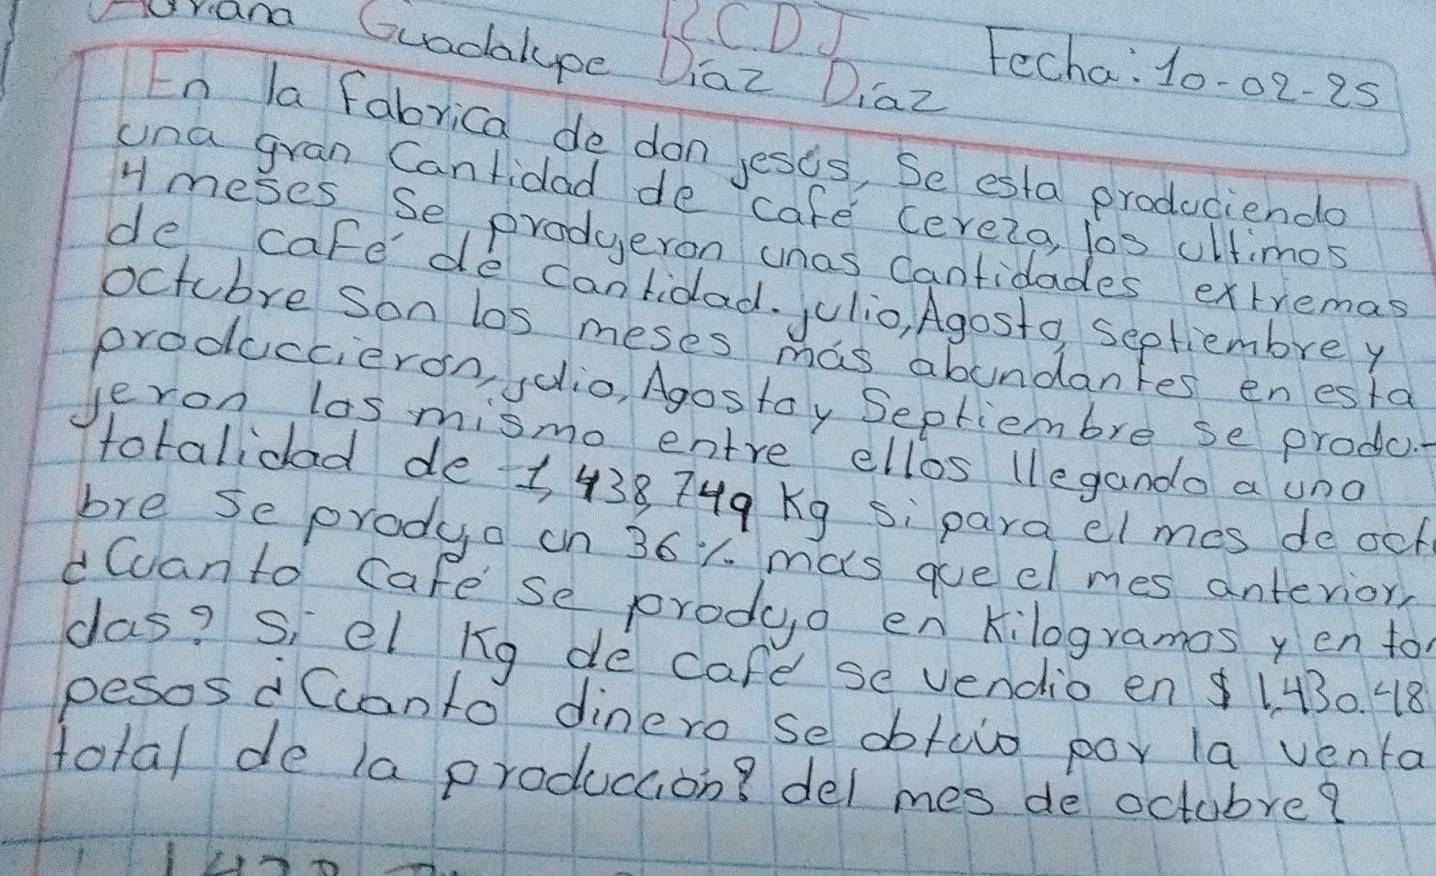 Guadalupe Díaz Díaz
R.C.D.J
Fecha: 10-02-25
En la fabrica de don jesús, Se esta produciendo
una gran Cantidad de café cereza, los ultimos
4 meses se produjeron unas cantidades extremas
de café de cantidad. julio, Agosto, septiembre y
octubre son los meses más abundantes en esta
produccieron, julio, Agosto y Septiembre se produ-
jeron los mismo entre ellos llegando a una
totalidad de 1,438,749 Kg si para el mes de octu
bre se produjo un 36% más que el mes anterior,
¿Cuanto café se produjo en Kilogramos y en to
das? Si el Kg de café se vendio en $ 1,430.48
pesos ¿Cuanto dinero se obtuvo por la venta
total de la producción? del mes de octubre?